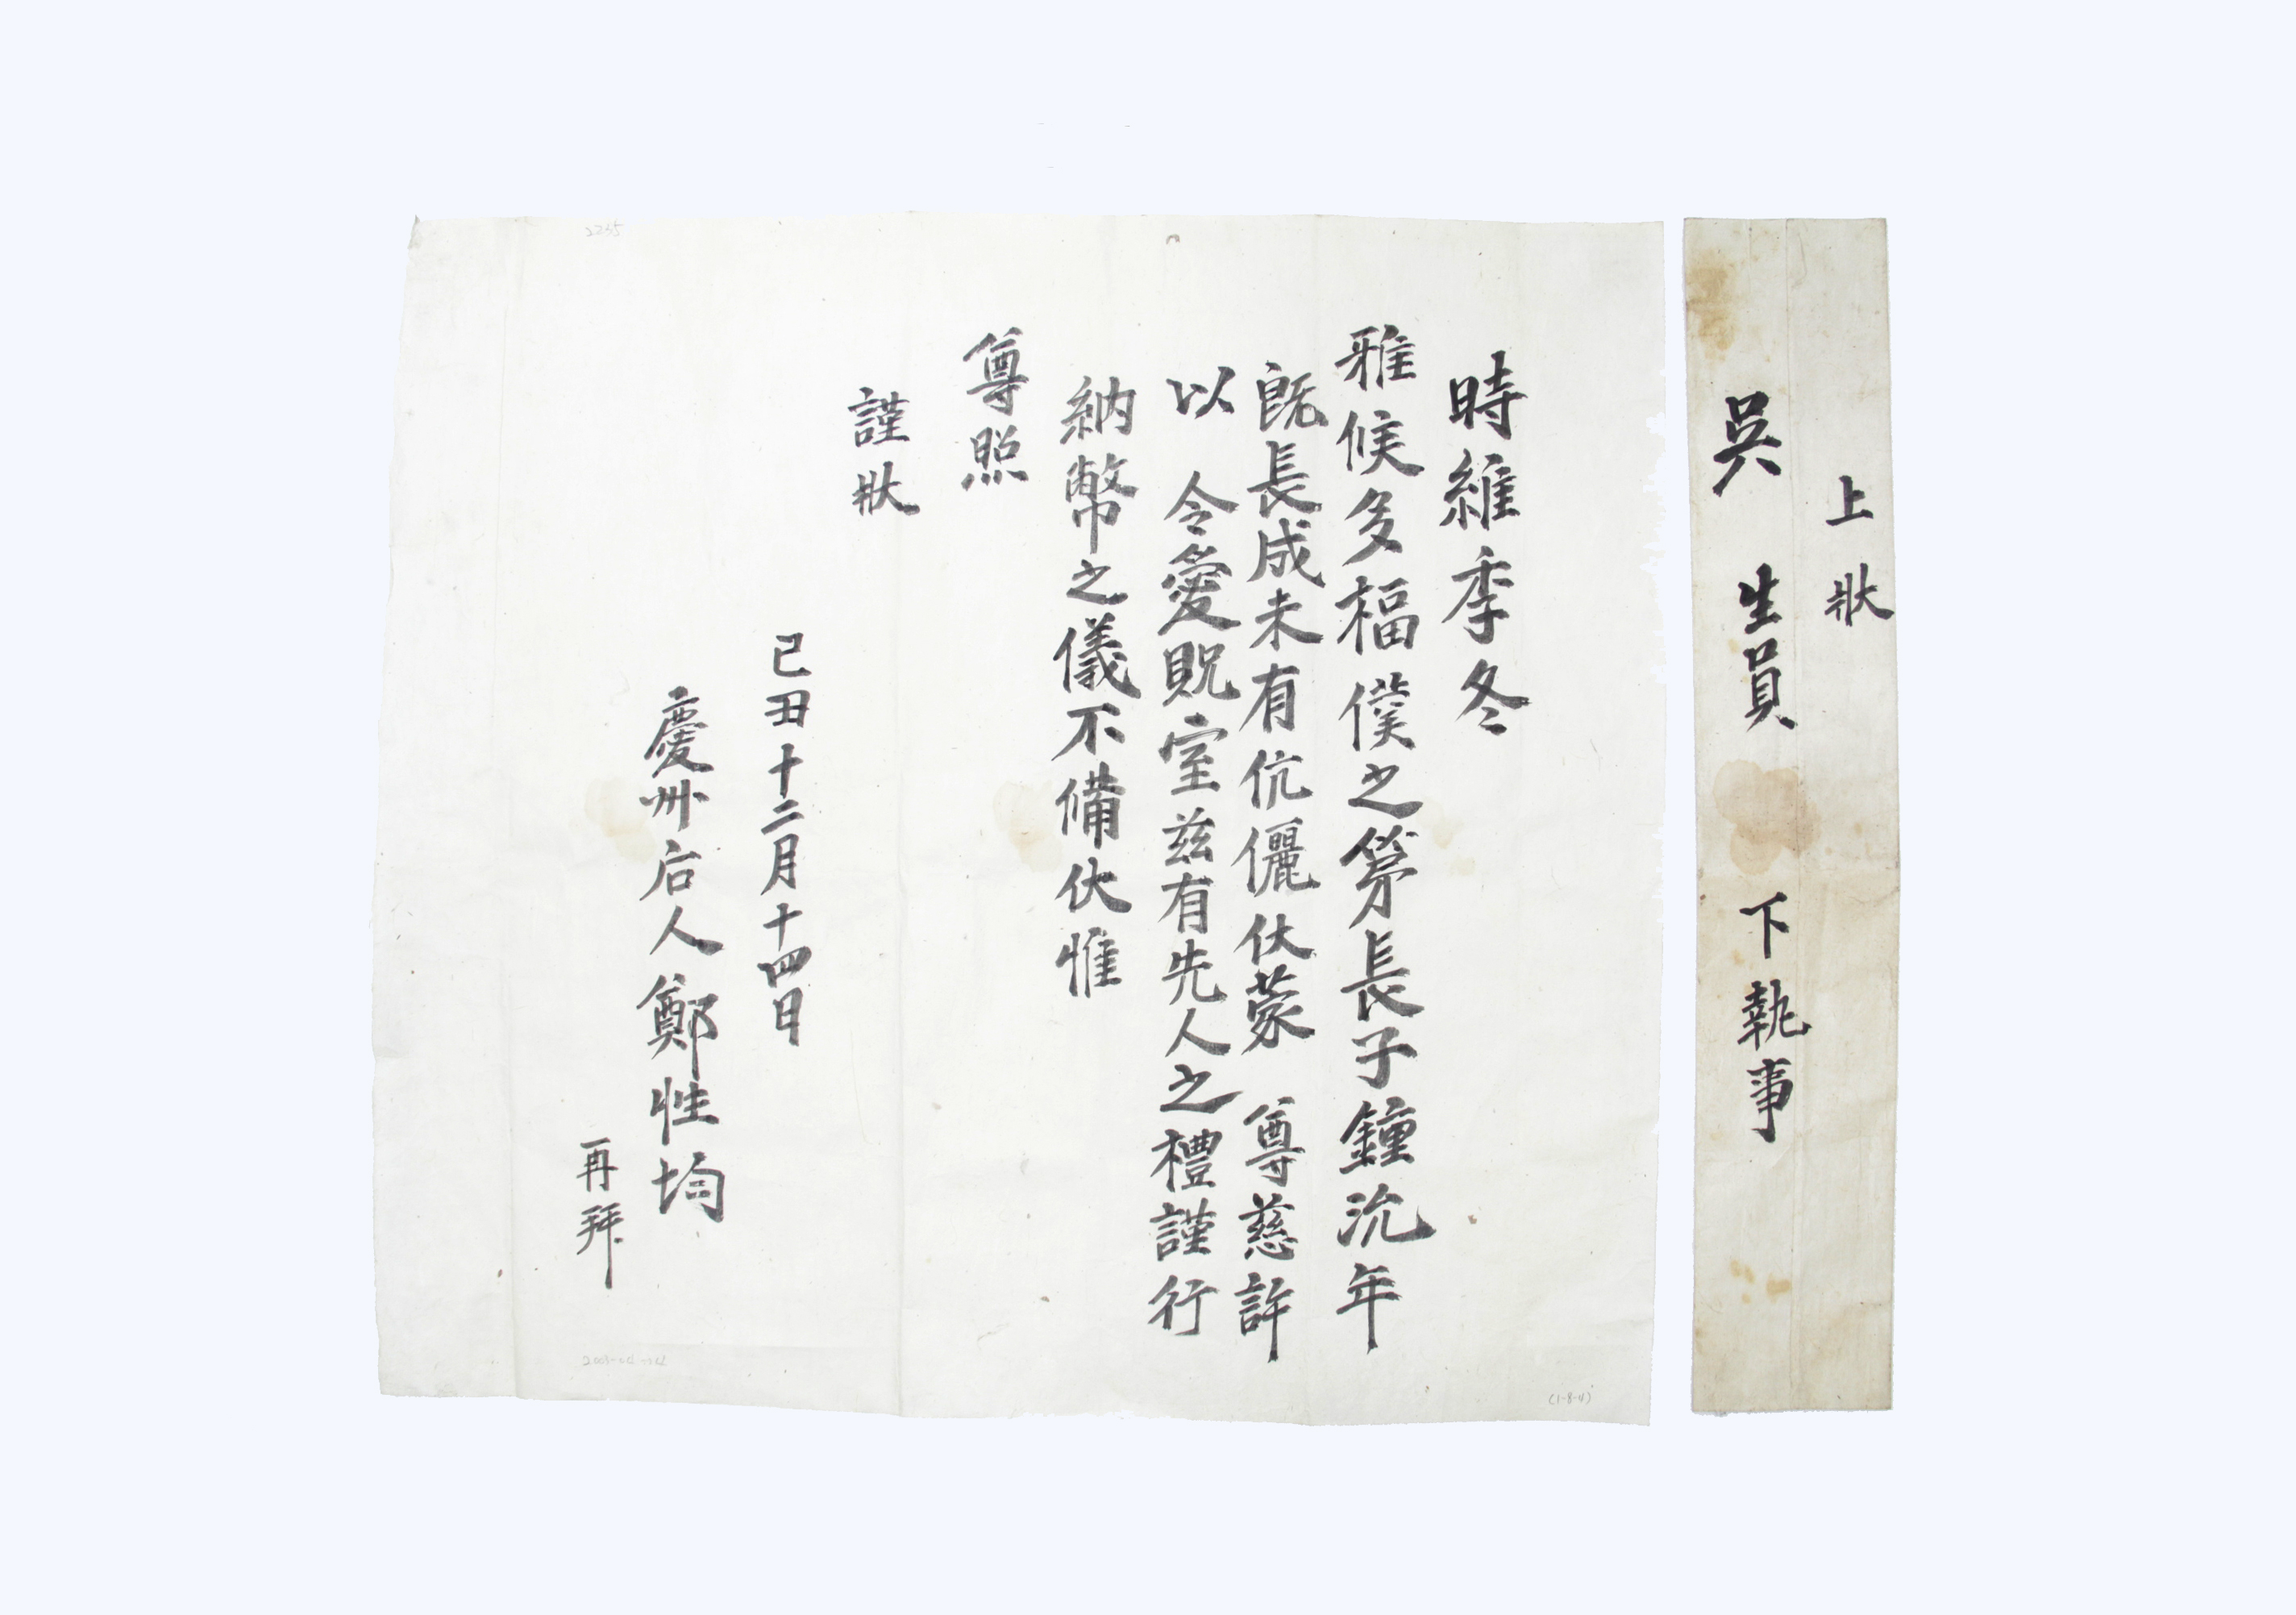 上狀
吳 生員 下執事
時維季冬
雅候多福僕之第長子鐘沇年
旣長成未有伉儷伏蒙 尊慈許
以 令愛貺室玆有先人之禮謹行
納幣之儀不備伏惟
尊照
謹狀
己丑十二月十四日
慶州后人鄭性均
再拜
2235